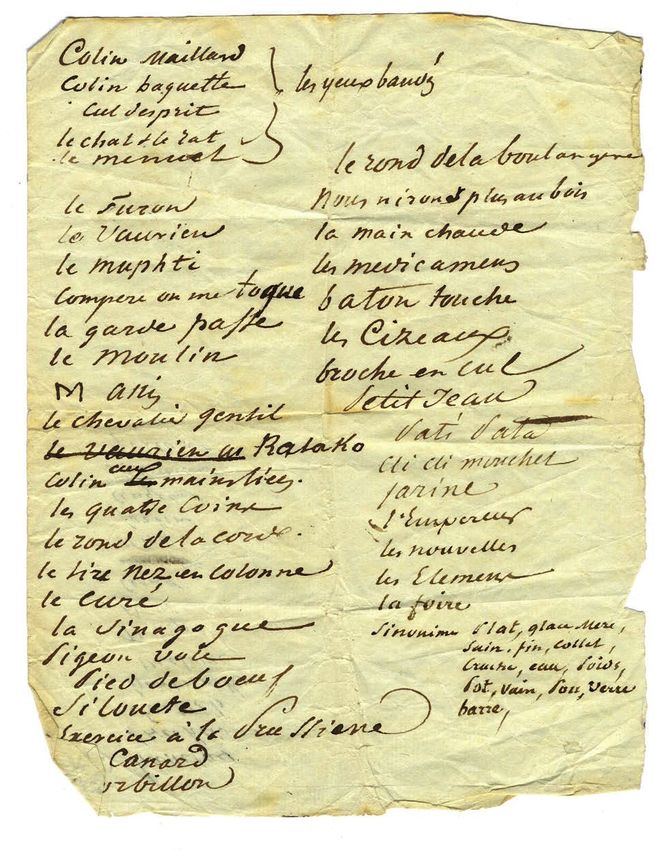 Colin Maillard
Colin baguette
les yeux bandés
Cul d'esprit
le chat & le rat
le menuet
le Furon
le Vaurien
le muphti
Compere on me toque
la garde passe
le moulin
le chevalier gentil
le vaurien ou Ratako
Colin aux les mains liées.
les quatre Coins
le rond de la cour.
le tire Nez, en Colonne
le Curé
la Sinagogue
Pigeon vole
Pied de boeuf
Silouete
Exercice à la Prussiene
Canard
rbillon
le rond de la boulangere
Nous n'irons plus au bois
la main chaude
les medicamens
baton touche
les Cizeaux
broche en cul
Petit Jean
Pati Pata
Cli Cli mouchet
farine
l'Empereur
les nouvelles
les Elemens
la foire
Sinonime Plat, glace Mere,
Sain, fin, Collet,
Cruche, eau, Poids,
Pot, Vain, Pou, Verre
barre,